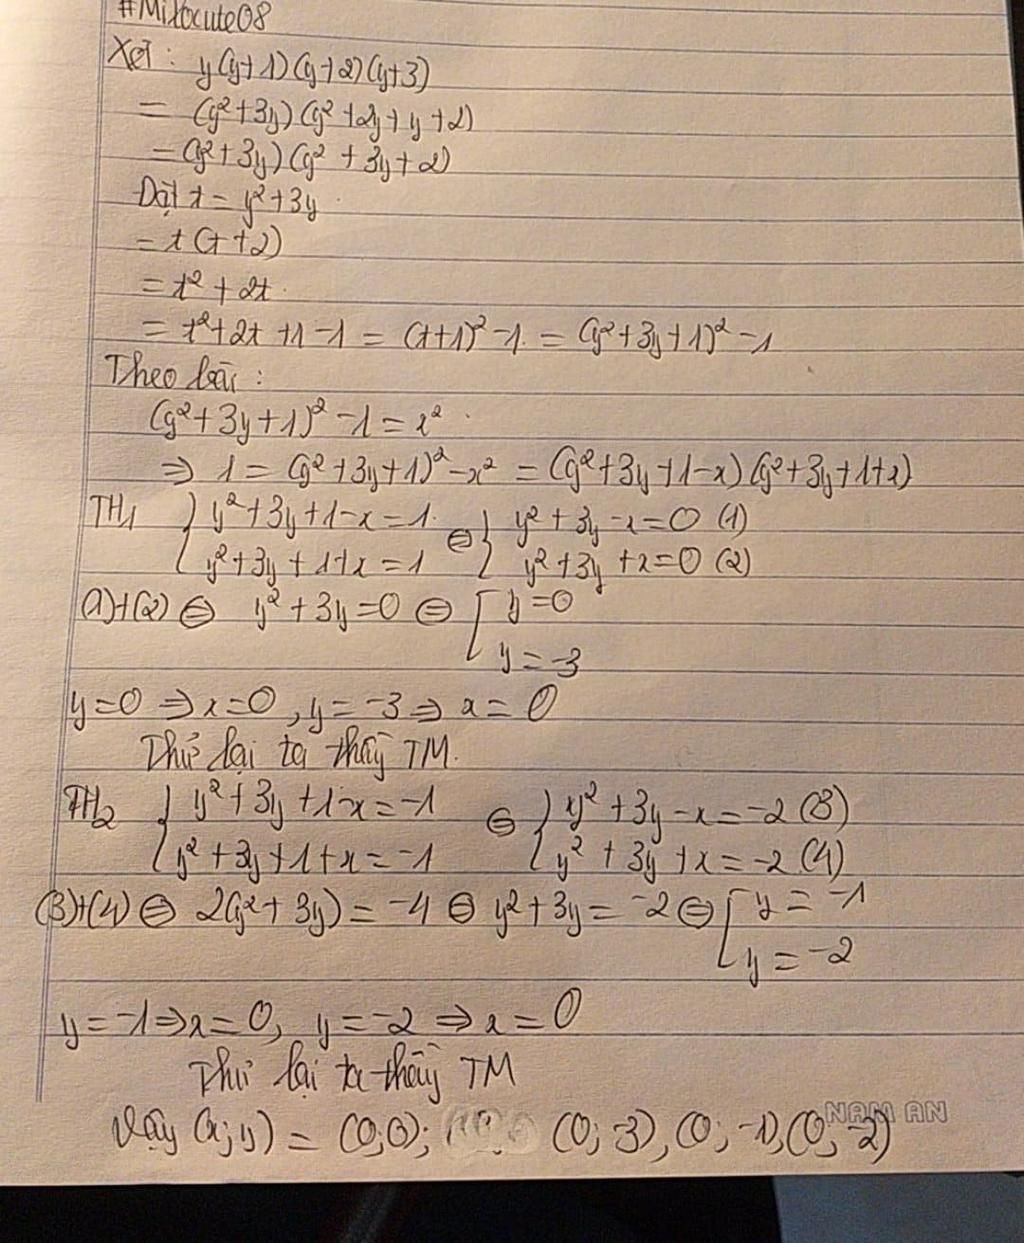 #Mixocute08
Xét: y(y+1)(y+2)(y+3)
= (y²+3y)(y²+2y+y+2)
= (y²+3y)(y²+3y+2)
Đặt t = y²+3y
= t(t+2)
= t²+2t
= t²+2t+1-1 = (t+1)²-1 = (y²+3y+1)²-1
Theo bài:
(y²+3y+1)²-1 = x²
⇒ 1 = (y²+3y+1)²-x² = (y²+3y+1-x)(y²+3y+1+x)
TH1 { y²+3y+1-x=1 ⇔ { y²+3y-x=0 (1)
y²+3y+1+x=1 y²+3y+x=0 (2)
(1)+(2) ⇔ y²+3y=0 ⇔ [ y=0
y=-3
y=0 ⇒ x=0, y=-3 ⇒ x=0
Thử lại ta thấy TM.
TH2 { y²+3y+1-x=-1 ⇔ { y²+3y-x=-2 (3)
y²+3y+1+x=-1 y²+3y+x=-2 (4)
(3)+(4) ⇔ 2(y²+3y)=-4 ⇔ y²+3y=-2 ⇔ [ y=-1
y=-2
y=-1 ⇒ x=0, y=-2 ⇒ x=0
Thử lại ta thấy TM
NAM AN
Vậy (x;y) = (0;0); (0;-3), (0;-1), (0;-2)